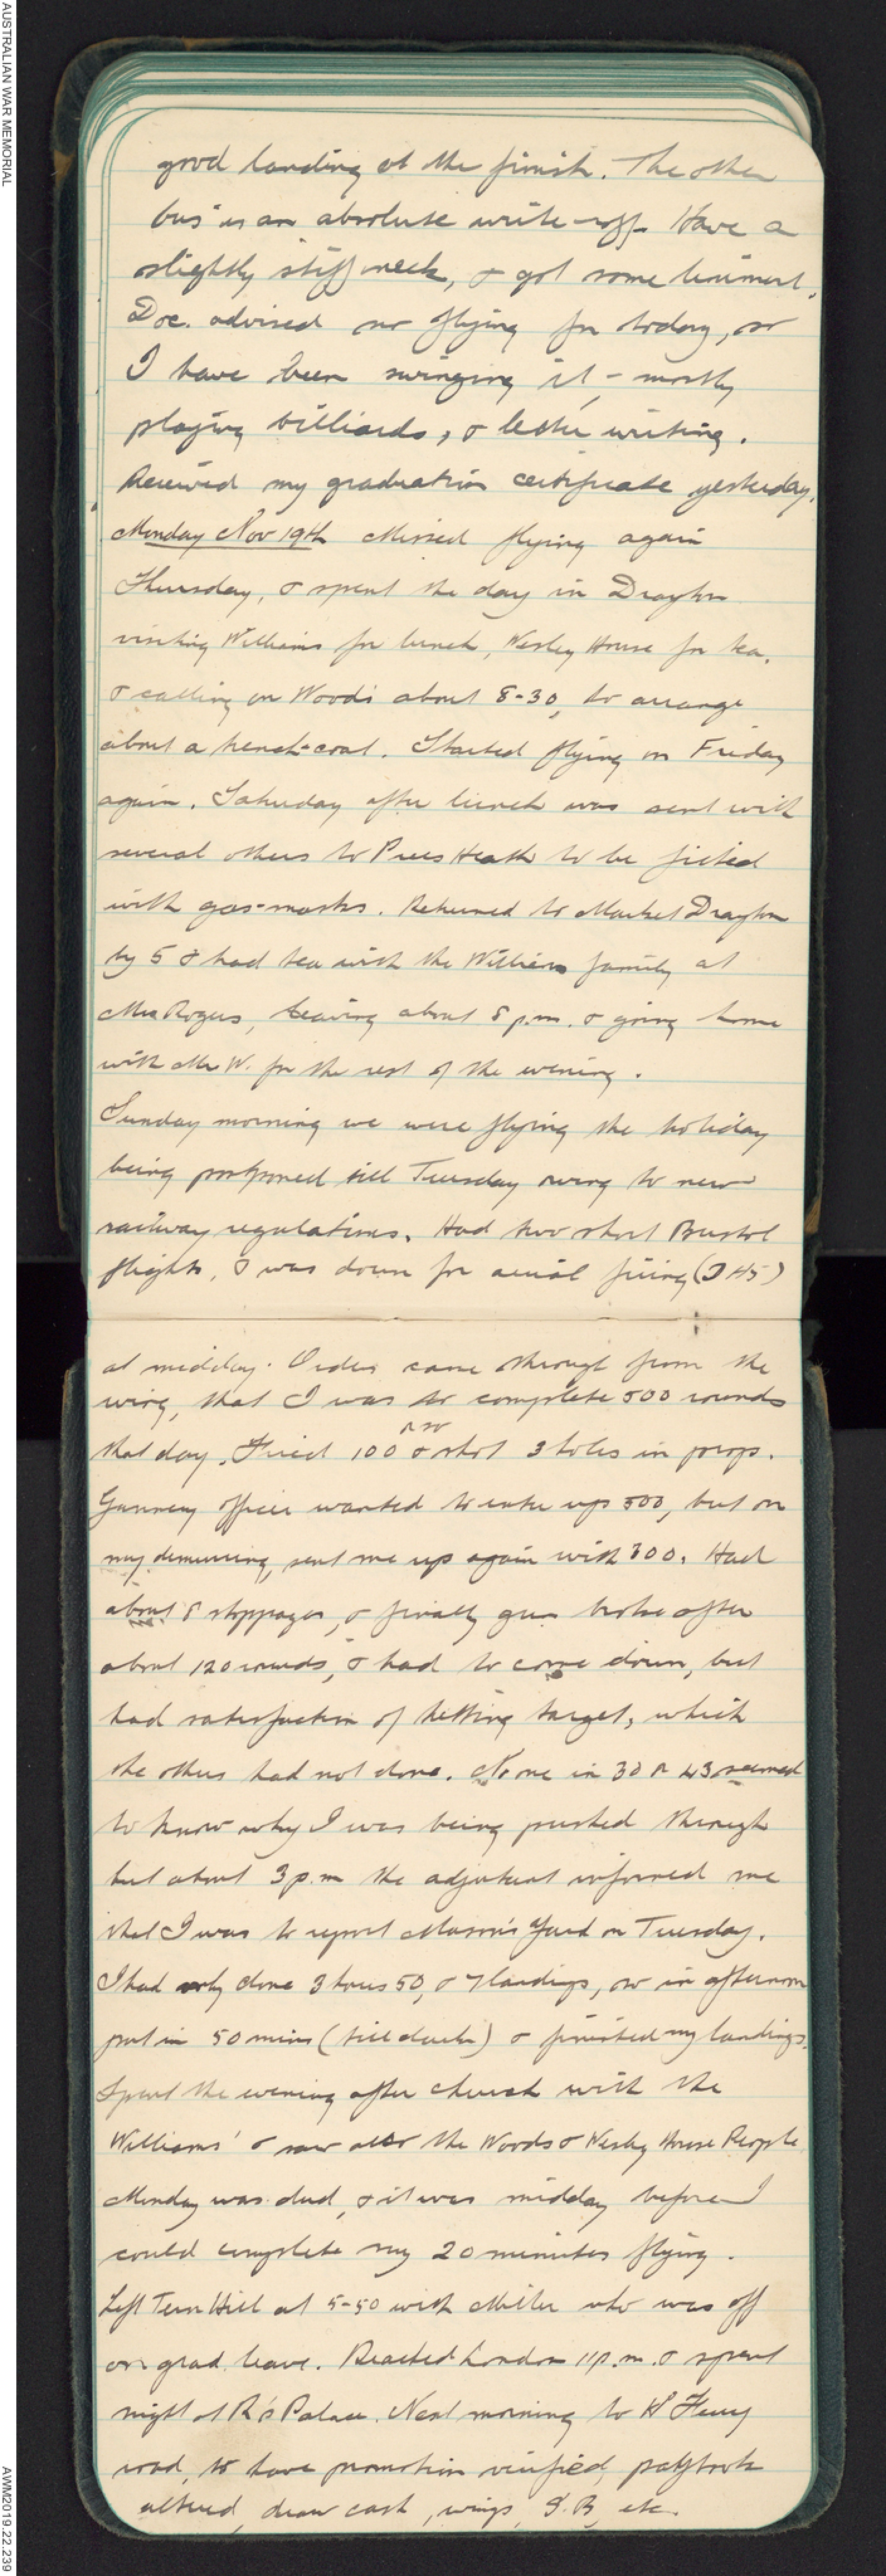 AUSTRALIAN WAR MEMORIAL
good landing at the finish. The other
bus is an absolute write-off. Have a
slightly stiff neck, & got some liniment.
Doc. advised no flying for today, so
I have been swinging it, - mostly
playing billiards, & letter writing.
Received my graduation certificate yesterday.
Monday Nov 19th Missed flying again
Thursday, & spent the day in Drayton
visiting Williams for lunch, Wesley House for tea,
& calling on Woods about 8-30, to arrange
about a trench-coat. Started flying on Friday
again. Saturday after lunch was sent with
several others to Prees Heath to be fitted
with gas-masks. Returned to Market Drayton
by 5 & had tea with the Williams family at
Mrs Rogers, leaving about 8 p.m. & going home
with Mr W. for the rest of the evening.
Sunday morning we were flying the holiday
being postponed till Tuesday owing to new
railway regulations. Had two short Bristol
flights, & was down for aerial firing
at midday. Orders came through from the
wing, that I was to complete 500 rounds
that day. Fired 100 or so & shot 3 holes in prop.
Gunnery officer wanted to take up 500, but on
my demurring, sent me up again with 300. Had
about 8 stoppages, & finally gun broke after
about 120 rounds, & had to come down, but
had satisfaction of hitting target, which
the others had not done. No one in 30 or 43 seemed
to know why I was being pushed through
but about 3 p.m the adjutant informed me
that I was to report Mason's Yard on Tuesday.
I had only done 3 hours 50, & 7 landings, so in afternoon
put in 50 mins (till dark) & finished my landings.
Spent the evening after church with the
Williams' & saw also the Woods & Wesley House People
Monday was dud, & it was midday before I
could complete my 20 minutes flying.
Left Tern Hill at 5-50 with Miller who was off
on grad. leave. Reached London 11 p.m. & spent
night at R's Palace. Next morning to
road, to have promotion verified, paybook
altered, draw cash, wings, S.B, etc.
AWM2019.22.239